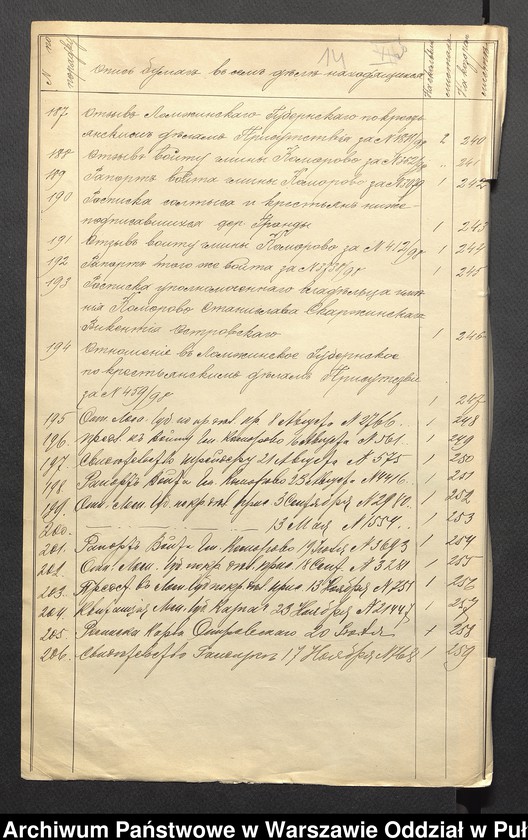 14
№ по порядку
Опись бумагъ въ семъ дѣлѣ находящихся
На сколькихъ листахъ
На какомъ листѣ
187 Отзывъ Ломжинскаго Губернскаго по кресть
янскимъ дѣламъ Присутствія за № 1821/90 2 240
188 Отзывъ войту гмины Коморово за № 162/90 " 241
189 Рапортъ войта гмины Коморово за № 3029 1 242
190 Росписка солтыса и крестьянъ ниже
подписавшихся дер. Гронды 1 243
191 Отзывъ войту гмины Коморово за № 412/90 1 244
192 Рапортъ того же войта за № 3738/90 1 245
193 Росписка уполномоченнаго владѣльца имѣ
нія Коморово Станислава Скаржинскаго
Викентія Островскаго 1 246
194 Отношеніе въ Ломжинское Губернское
по крестьянскимъ дѣламъ Присутствіе
за № 459/90 1 247
195 Отн. Лом. Губ по кр дѣл. пр. 8 Августа № 2766 1 248
196 Предп. къ Войту гм. Коморово 16 Августа № 561 1 249
197. Свидѣтельство 21 Августа № 575 1 250
198. Рапортъ Войта гм. Коморово 25 Августа № 4416. 1 251
199. Отн. Лом. Губ по кр дѣл прис. 5 Сентября № 2910. 1 252
200. 13 Мая № 1554. 1 253
201. Рапортъ Войта гм. Коморово 19 Іюля № 3693 1 254
202. Отн. Лом. Губ по кр. дѣл. прис. 18 Сент. № 3221 1 255
203. въ Лом. Губ по кр дѣл. прис. 13 Ноября № 751 1 256
204. Лом. Губ 23 Ноября № 21447 1 257
205. Росписка Островскаго 20 1 258
206. Свидѣтельство 17 Ноября № 768 1 259
Archiwum Państwowe w Warszawie Oddział w Puł